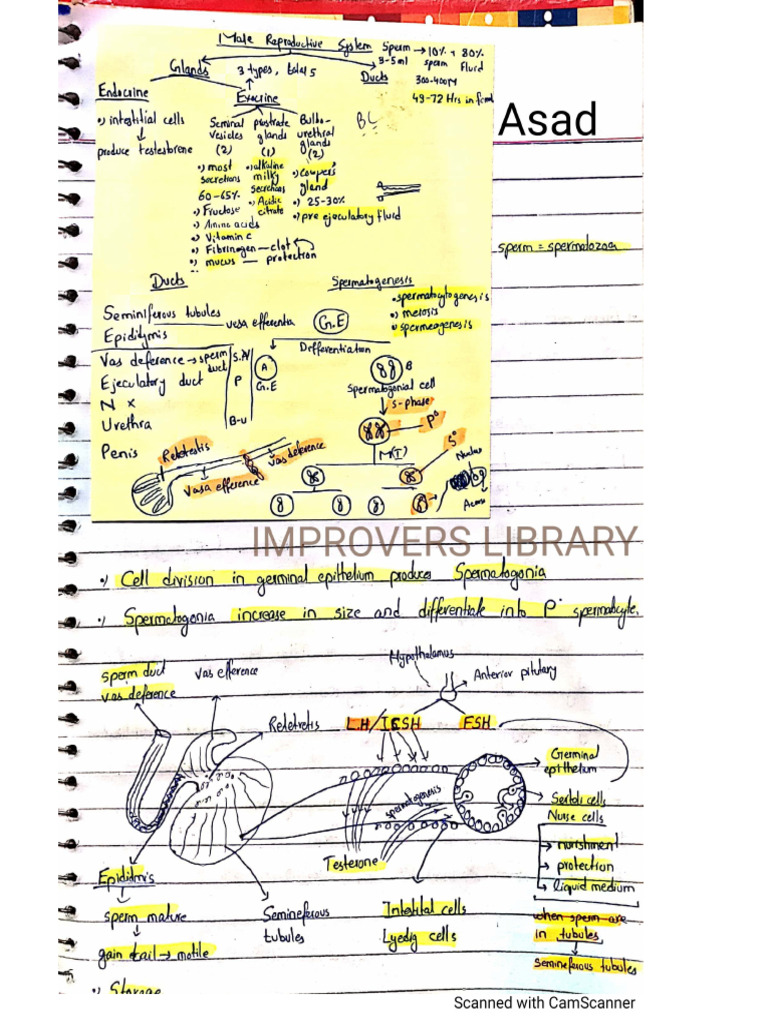 Male Reproductive System
Sperm → 10% + 80%
3-5ml sperm Fluid
300-400M
48-72 Hrs in
Glands 3 types, total 5
Ducts
Endocrine
Exocrine
•) intestitial cells
produce testesterone
Seminal vesicles (2)
prostrate glands (1)
Bulbo-urethral glands (2)
•) most secretions
60-65%
•) Fructose
•) Amino acids
•) Vitamin c
•) Fibrinogen — clot
•) mucus — protection
•) alkaline milky secretions
•) Acidic citrate
•) couper's gland
•) 25-30%
•) pre ejaculatory fluid
Asad
sperm = spermatozoa
Ducts
Seminiferous tubules
vesa efferentia
Epididmis
Vas deference → sperm duct
Ejeculatory duct
N x
Urethra
Penis
S.V
P
B-u
Spermatogenesis
•) spermatocytogenesis
•) meiosis
•) spermeogenesis
G.E
Differentiation
A
G.E
B
Spermatogonial cell
S-phase
P°
M(I)
S°
Nucleus
Retetestis
vas deference
Vasa efference
IMPROVERS LIBRARY
•) Cell division in germinal epithelium produces Spermatogonia
•) Spermatogonia increase in size and differentiate into P° spermatocyte.
sperm duct
vas deference
vas efference
Hypothalamus
Anterior pitutary
LH/ICSH
FSH
Germinal
epithelium
Sertoli cells
Nurse cells
→ nurishment
→ protection
→ liquid medium
spermatogenesis
Testerone
Epididmis
sperm mature
gain tail → motile
•) Storage
Semineferous
tubules
Intestital cells
Lyedig cells
when sperm are
in tubules
Semineferous tubules
Scanned with CamScanner